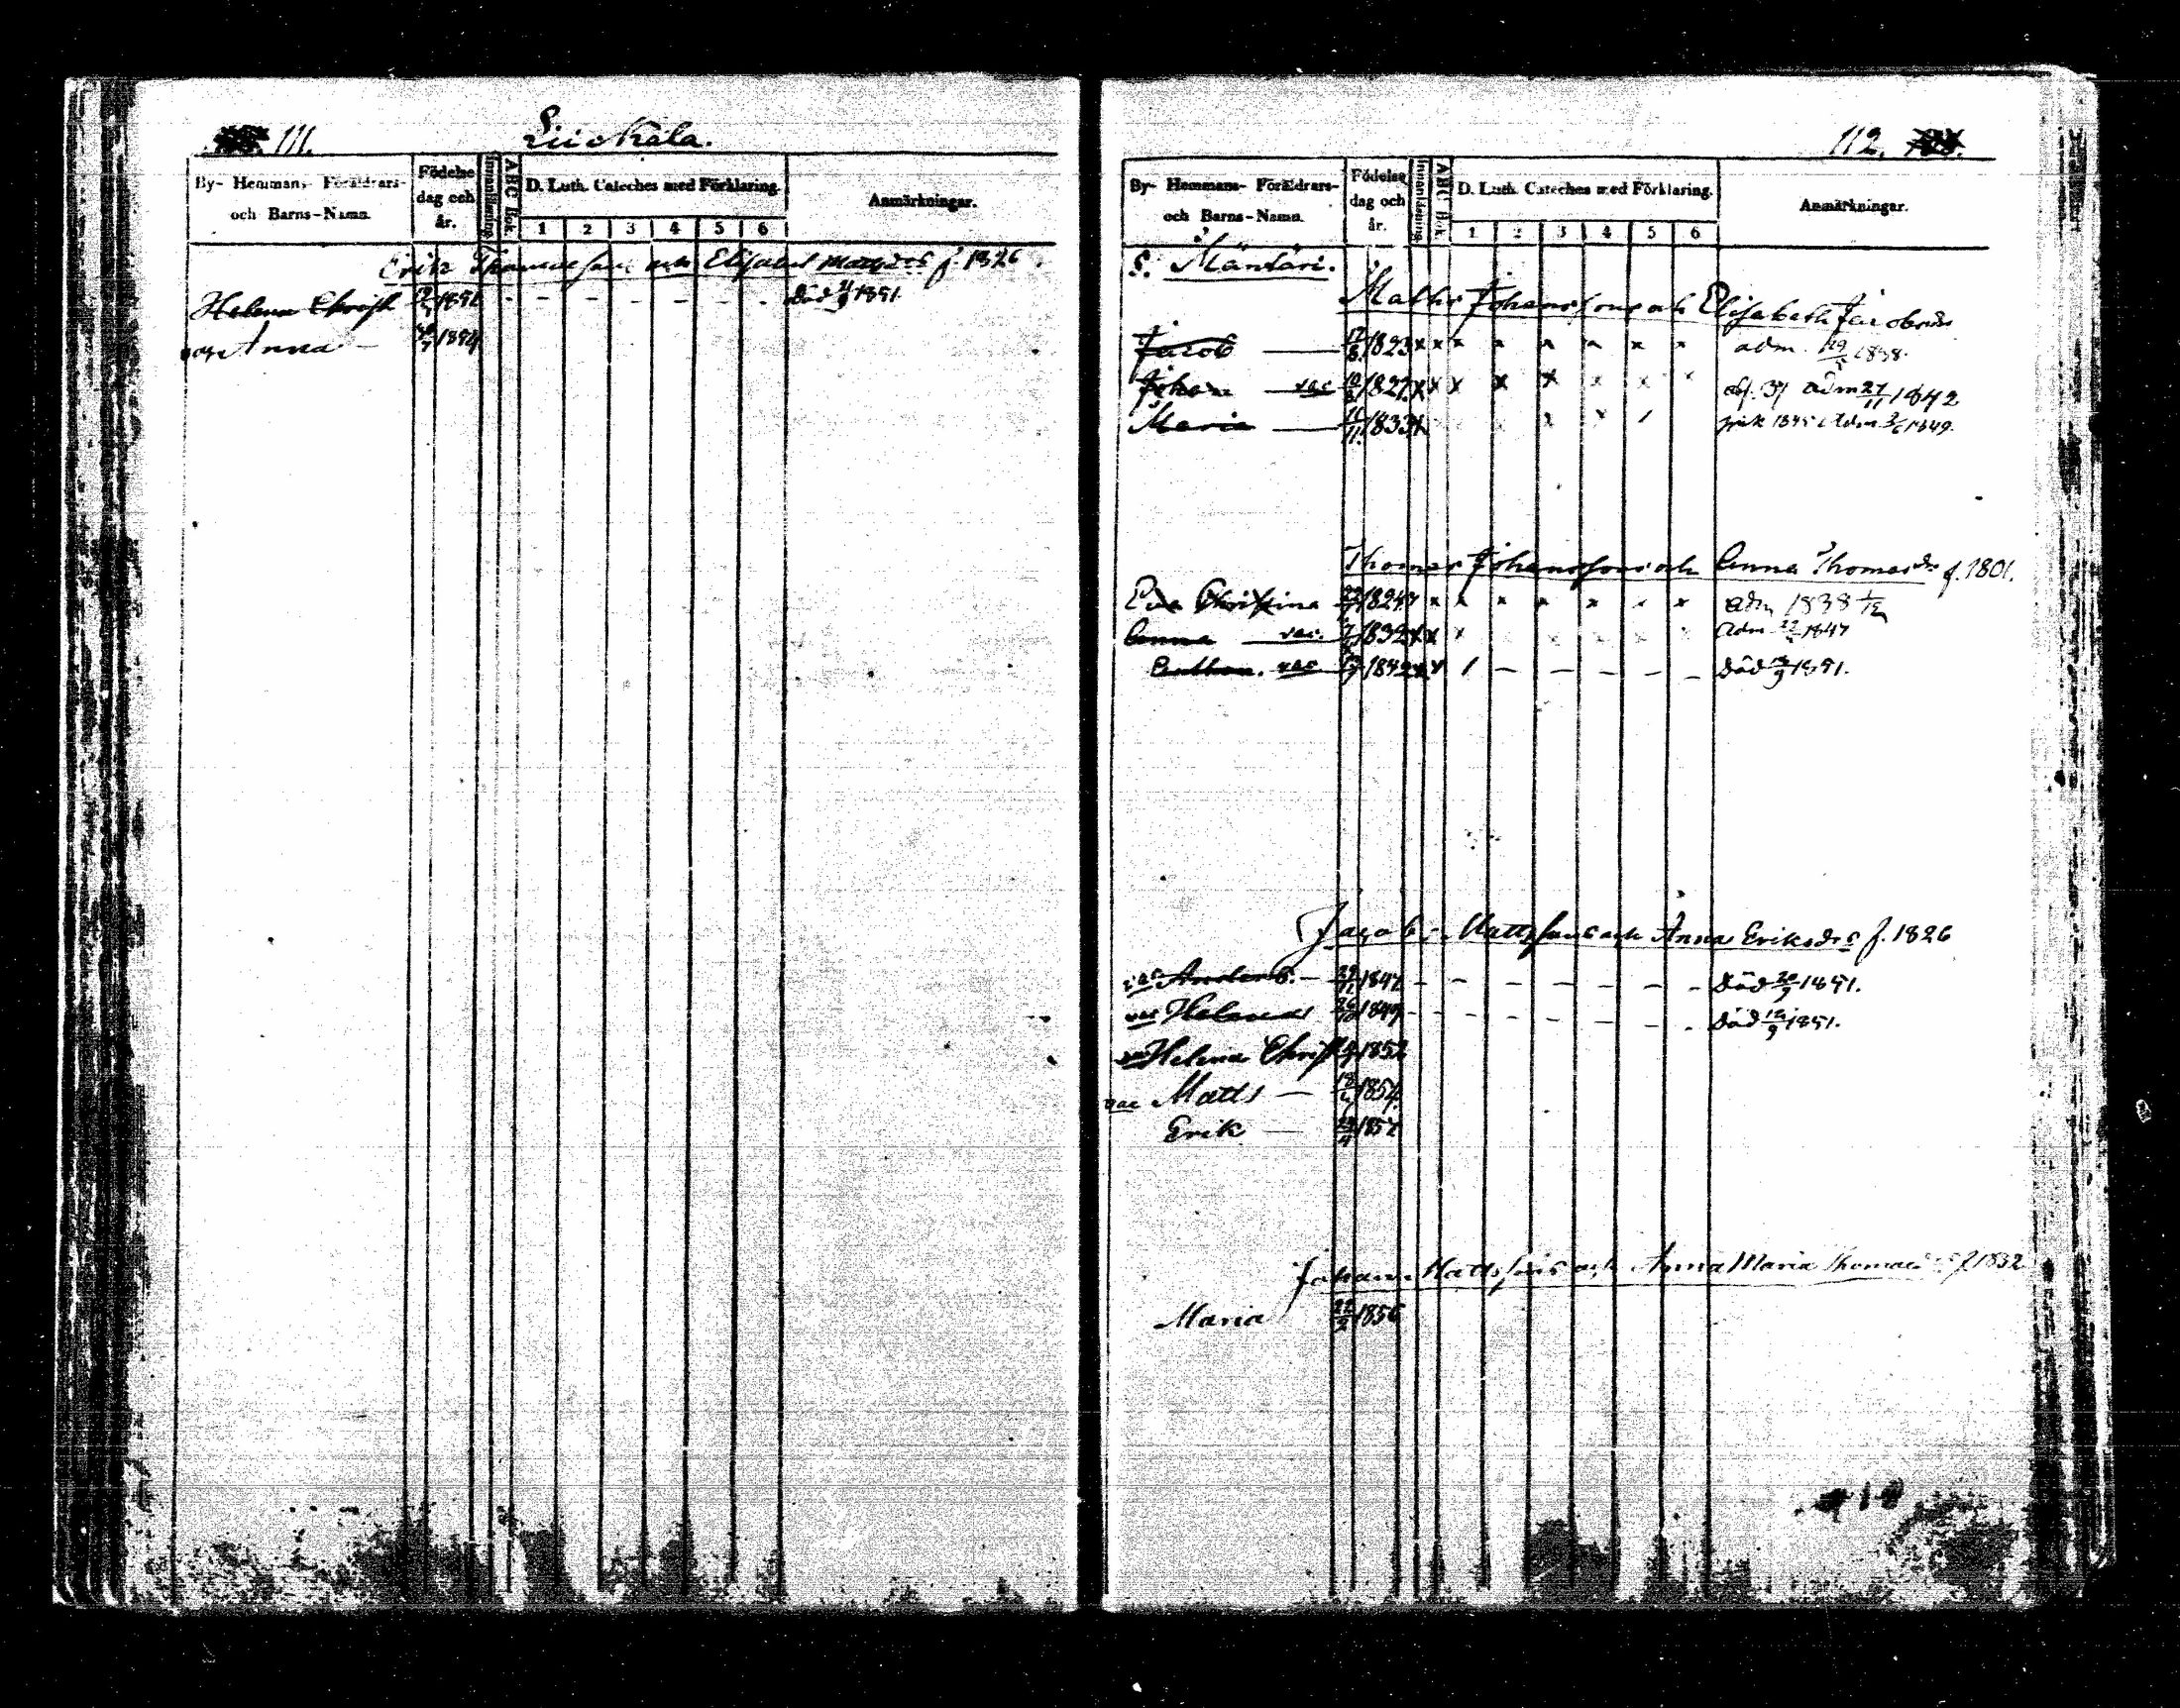 111.
Liickala.
By- Hemmans- Föräldrars- och Barns-Namn.
Födelse dag och år.
Innanläsning.
ABC Bok.
D. Luth. Cateches med Förklaring.
1 2 3 4 5 6
Anmärkningar.
Erik Thomassons och Elisabet Mattsdrs f. 1826
Helena Christ 1851 - - - - - - Död 1851.
vac Anna — 1854
112.
By- Hemmans- Föräldrars- och Barns-Namn.
Födelse dag och år.
Innanläsning.
ABC Bok.
D. Luth. Cateches med Förklaring.
1 2 3 4 5 6
Anmärkningar.
5. Mäntäri.
Matts Johanssons och Elisabeth Jacobsdrs
Jacob — 17/8 1823 x x x x x x x x adm. 1838.
Johan vac 1827 x x x x x x x x adm 27/11 1842
Maria — 11/11 1833 Adm. 1849.
Thomas Johanssons och Anna Thomasdrs f. 1801.
Eva Christina 1824 x x x x x x x adm 1838
Anna vac. 1832 x x x Adm 1847
Anthon. vac 1842 x x / - - - - - Död 1851.
Jacob Mattssons och Anna Eriksdrs f. 1826
vac Anders. — 1847 - - - - - - - Död 20/9 1851.
vac Helena 1849 - - - - - - - Död 19/9 1851.
vac Helena Christ 1852
vac Matts — 1854.
Erik — 1857
Johan Mattssons och Anna Maria Thomasdrs f. 1832
Maria 22/2 1856